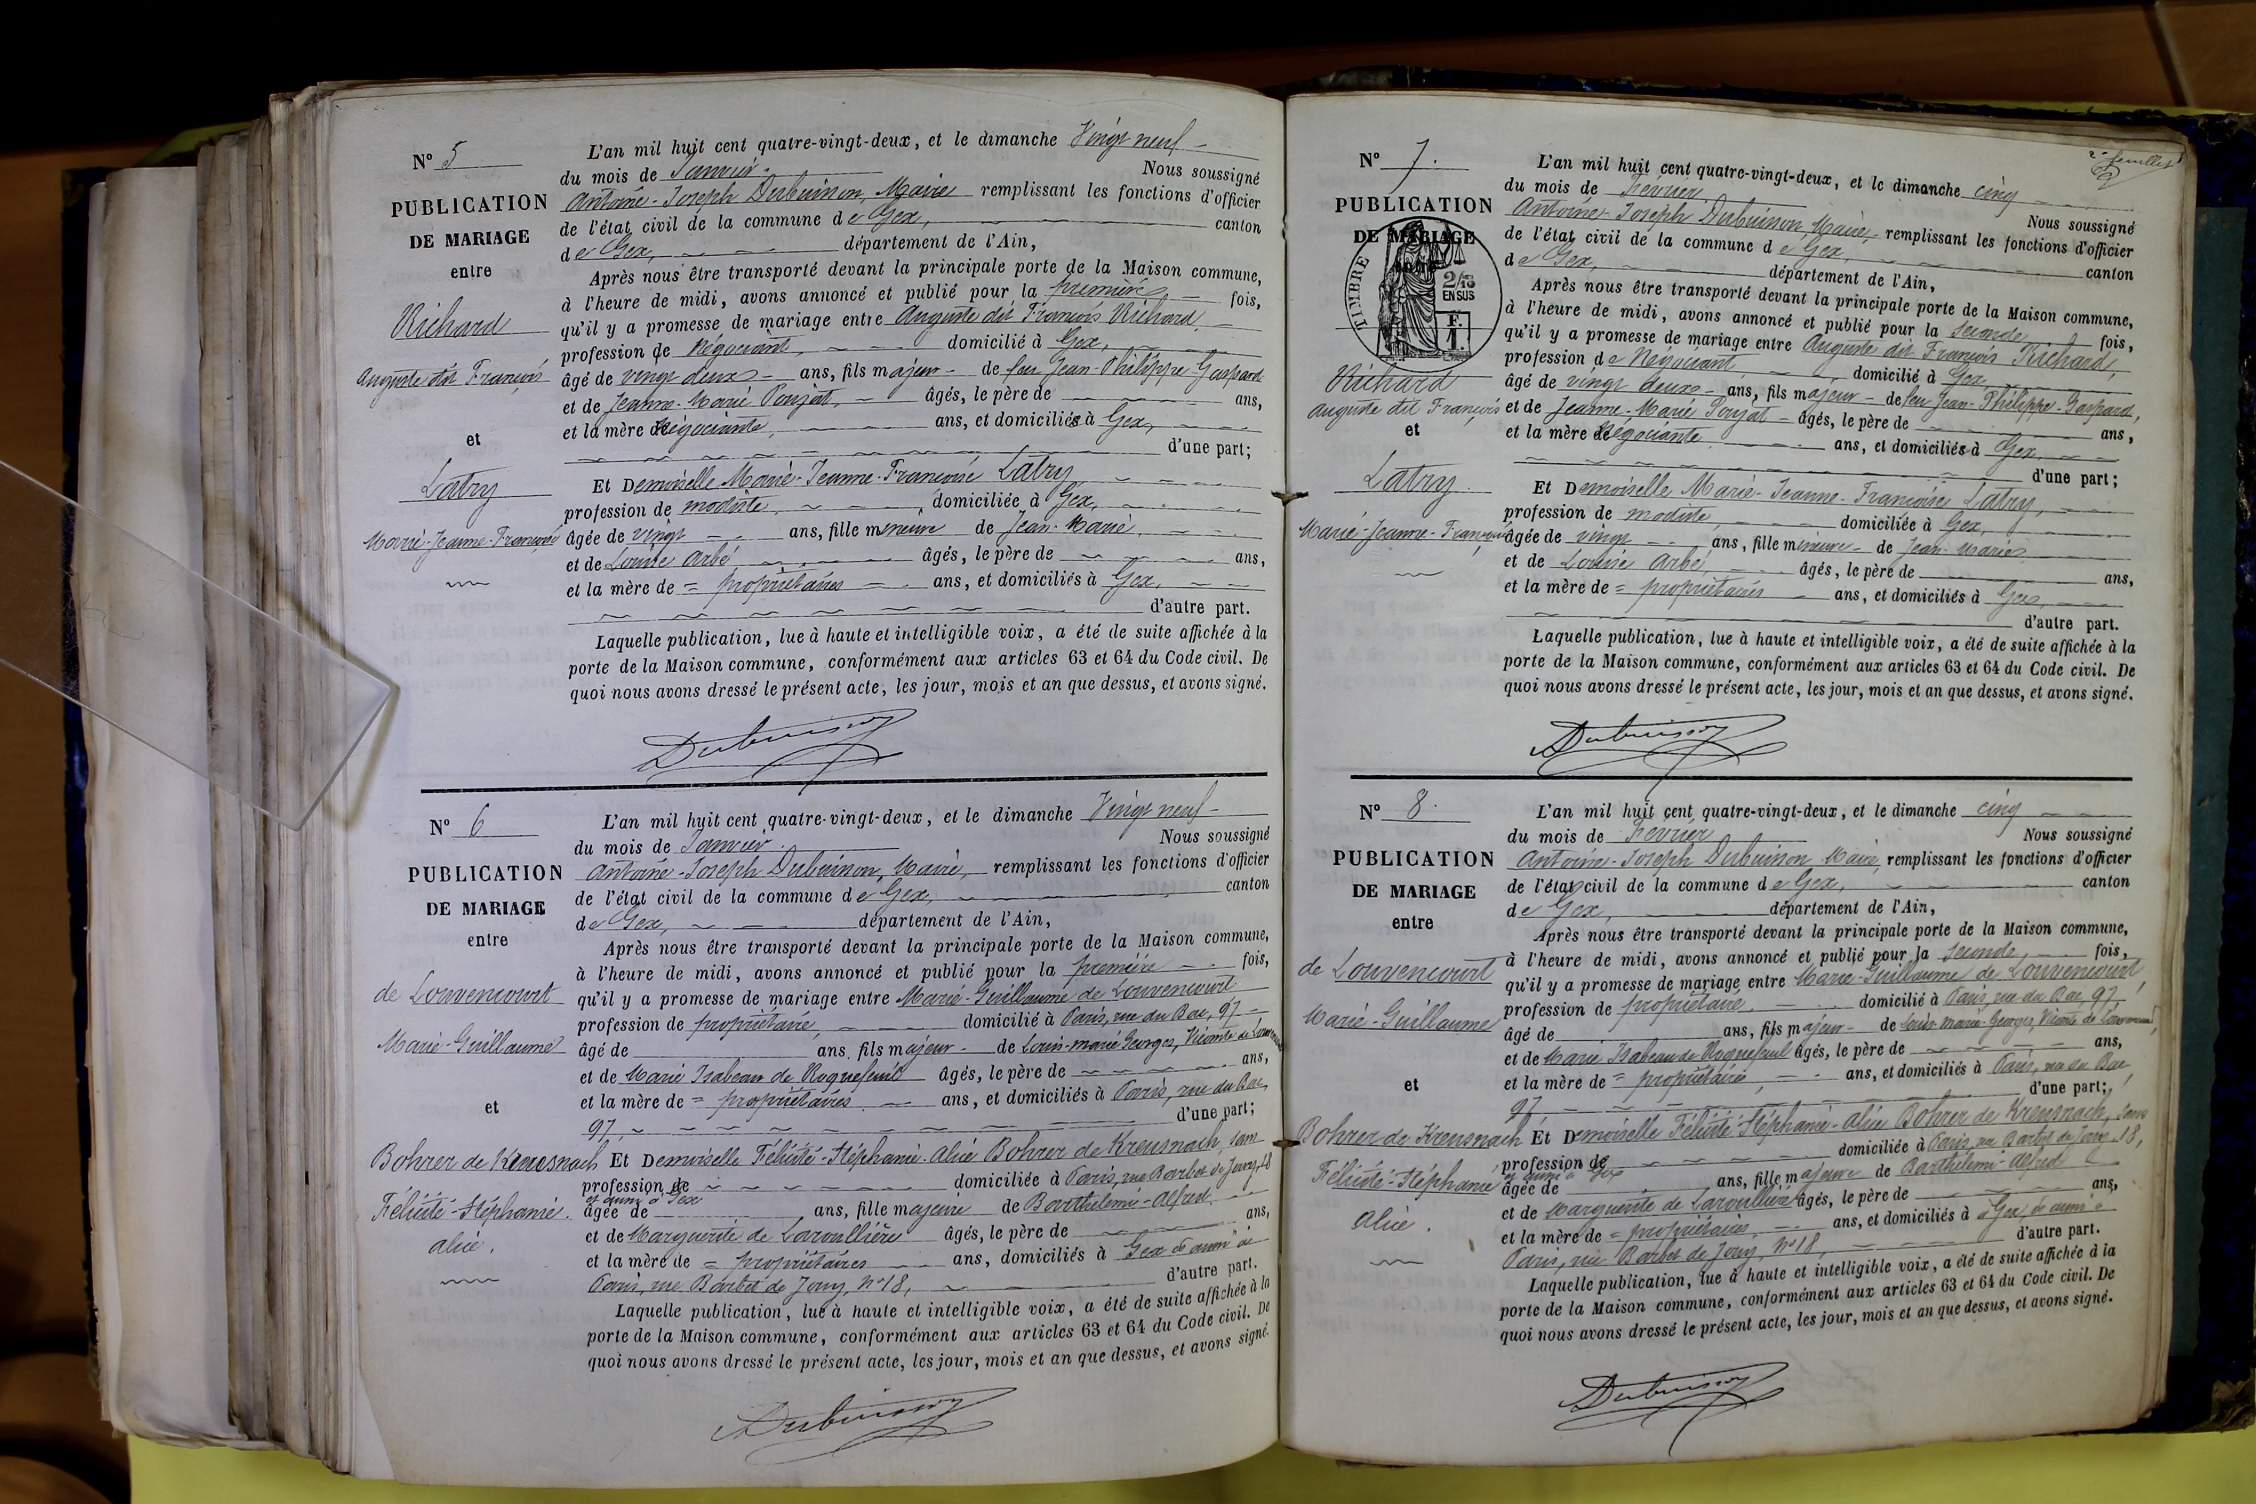 N° 5
PUBLICATION
DE MARIAGE
entre
Richard
Auguste dit François
et
Latry
Marie-Jeanne-Françoise
L'an mil huit cent quatre-vingt-deux, et le dimanche Vingt neuf
du mois de Janvier. Nous soussigné
Antoine-Joseph Dubuisson, Maire remplissant les fonctions d'officier
de l'état civil de la commune de Gex, canton
de Gex, département de l'Ain,
Après nous être transporté devant la principale porte de la Maison commune,
à l'heure de midi, avons annoncé et publié pour la première fois,
qu'il y a promesse de mariage entre Auguste dit François Richard,
profession de Négociant, domicilié à Gex,
âgé de vingt deux ans, fils majeur de feu Jean-Philippe Gaspard
et de Jeanne-Marie Ponjat, âgés, le père de ans,
et la mère de Négociante, ans, et domiciliés à Gex,
d'une part;
Et Demoiselle Marie-Jeanne-Françoise Latry
profession de modiste, domiciliée à Gex,
âgée de vingt ans, fille mineure de Jean-Marie
et de Louise Arbé âgés, le père de ans,
et la mère de = propriétaires ans, et domiciliés à Gex,
d'autre part.
Laquelle publication, lue à haute et intelligible voix, a été de suite affichée à la
porte de la Maison commune, conformément aux articles 63 et 64 du Code civil. De
quoi nous avons dressé le présent acte, les jour, mois et an que dessus, et avons signé.
Dubuisson
N° 6
PUBLICATION
DE MARIAGE
entre
de Louvencourt
Marie-Guillaume
et
Bohrer de Kreusnach
Félicité-Stéphanie.
Alice.
L'an mil huit cent quatre-vingt-deux, et le dimanche Vingt neuf
du mois de Janvier. Nous soussigné
Antoine-Joseph Dubuisson, Maire, remplissant les fonctions d'officier
de l'état civil de la commune de Gex, canton
de Gex, département de l'Ain,
Après nous être transporté devant la principale porte de la Maison commune,
à l'heure de midi, avons annoncé et publié pour la première fois,
qu'il y a promesse de mariage entre Marie-Guillaume de Louvencourt
profession de propriétaire, domicilié à Paris, rue du Bac, 97
âgé de ans, fils majeur de Louis-marie Georges, Vicomte de Louvencourt
et de Marie Isabeau de Roquefeuil âgés, le père de ans,
et la mère de = propriétaires ans, et domiciliés à Paris, rue du Bac,
97, d'une part;
Et Demoiselle Félicité-Stéphanie-Alice Bohrer de Kreusnach, sans
profession de domiciliée à Paris, rue Barbet de Jouy, 18
et aussi à Gex
âgée de ans, fille majeure de Barthélemi-Alfred
et de Marguerite de Laroullière âgés, le père de ans,
et la mère de = propriétaires ans, domiciliés à Gex et aussi à
Paris, rue Barbet de Jouy, N° 18, d'autre part.
Laquelle publication, lue à haute et intelligible voix, a été de suite affichée à la
porte de la Maison commune, conformément aux articles 63 et 64 du Code civil. De
quoi nous avons dressé le présent acte, les jour, mois et an que dessus, et avons signé.
Dubuisson
2e feuillet
N° 7.
PUBLICATION
DE MARIAGE
entre
TIMBRE
2/10
EN SUS
F.
1.
Richard
Auguste dit François
et
Latry
Marie-Jeanne-Françoise
L'an mil huit cent quatre-vingt-deux, et le dimanche cinq
du mois de Février. Nous soussigné
Antoine-Joseph Dubuisson, Maire, remplissant les fonctions d'officier
de l'état civil de la commune de Gex, canton
de Gex, département de l'Ain,
Après nous être transporté devant la principale porte de la Maison commune,
à l'heure de midi, avons annoncé et publié pour la seconde fois,
qu'il y a promesse de mariage entre Auguste dit François Richard,
profession de Négociant domicilié à Gex,
âgé de vingt deux ans, fils majeur de feu Jean-Philippe-Gaspard,
et de Jeanne-Marie Ponjat âgés, le père de ans,
et la mère de Négociante ans, et domiciliés à Gex,
d'une part;
Et Demoiselle Marie-Jeanne-Françoise Latry,
profession de modiste, domiciliée à Gex,
âgée de vingt ans, fille mineure de Jean-Marie
et de Louise Arbé, âgés, le père de ans,
et la mère de = propriétaires ans, et domiciliés à Gex,
d'autre part.
Laquelle publication, lue à haute et intelligible voix, a été de suite affichée à la
porte de la Maison commune, conformément aux articles 63 et 64 du Code civil. De
quoi nous avons dressé le présent acte, les jour, mois et an que dessus, et avons signé.
Dubuisson
N° 8.
PUBLICATION
DE MARIAGE
entre
de Louvencourt
Marie-Guillaume
et
Bohrer de Kreusnach
Félicité-Stéphanie
Alice.
L'an mil huit cent quatre-vingt-deux, et le dimanche cinq
du mois de Février Nous soussigné
Antoine-Joseph Dubuisson Maire, remplissant les fonctions d'officier
de l'état civil de la commune de Gex, canton
de Gex, département de l'Ain,
Après nous être transporté devant la principale porte de la Maison commune,
à l'heure de midi, avons annoncé et publié pour la seconde, fois,
qu'il y a promesse de mariage entre Marie-Guillaume de Louvencourt,
profession de propriétaire, domicilié à Paris, rue du Bac, 97,
âgé de ans, fils majeur de Louis-marie-Georges, Vicomte de Louvencourt,
et de Marie Isabeau de Roquefeuil âgés, le père de ans,
et la mère de = propriétaires, ans, et domiciliés à Paris, rue du Bac
97 d'une part;
Et Demoiselle Félicité-Stéphanie-Alice Bohrer de Kreusnach, sans
profession de domiciliée à Paris, rue Barbet de Jouy 18,
et aussi à Gex
âgée de ans, fille majeure de Barthélemi-Alfred
et de Marguerite de Laroullière âgés, le père de ans,
et la mère de = propriétaires, ans, et domiciliés à Gex et aussi à
Paris, rue Barbet de Jouy, N° 18, d'autre part.
Laquelle publication, lue à haute et intelligible voix, a été de suite affichée à la
porte de la Maison commune, conformément aux articles 63 et 64 du Code civil. De
quoi nous avons dressé le présent acte, les jour, mois et an que dessus, et avons signé.
Dubuisson